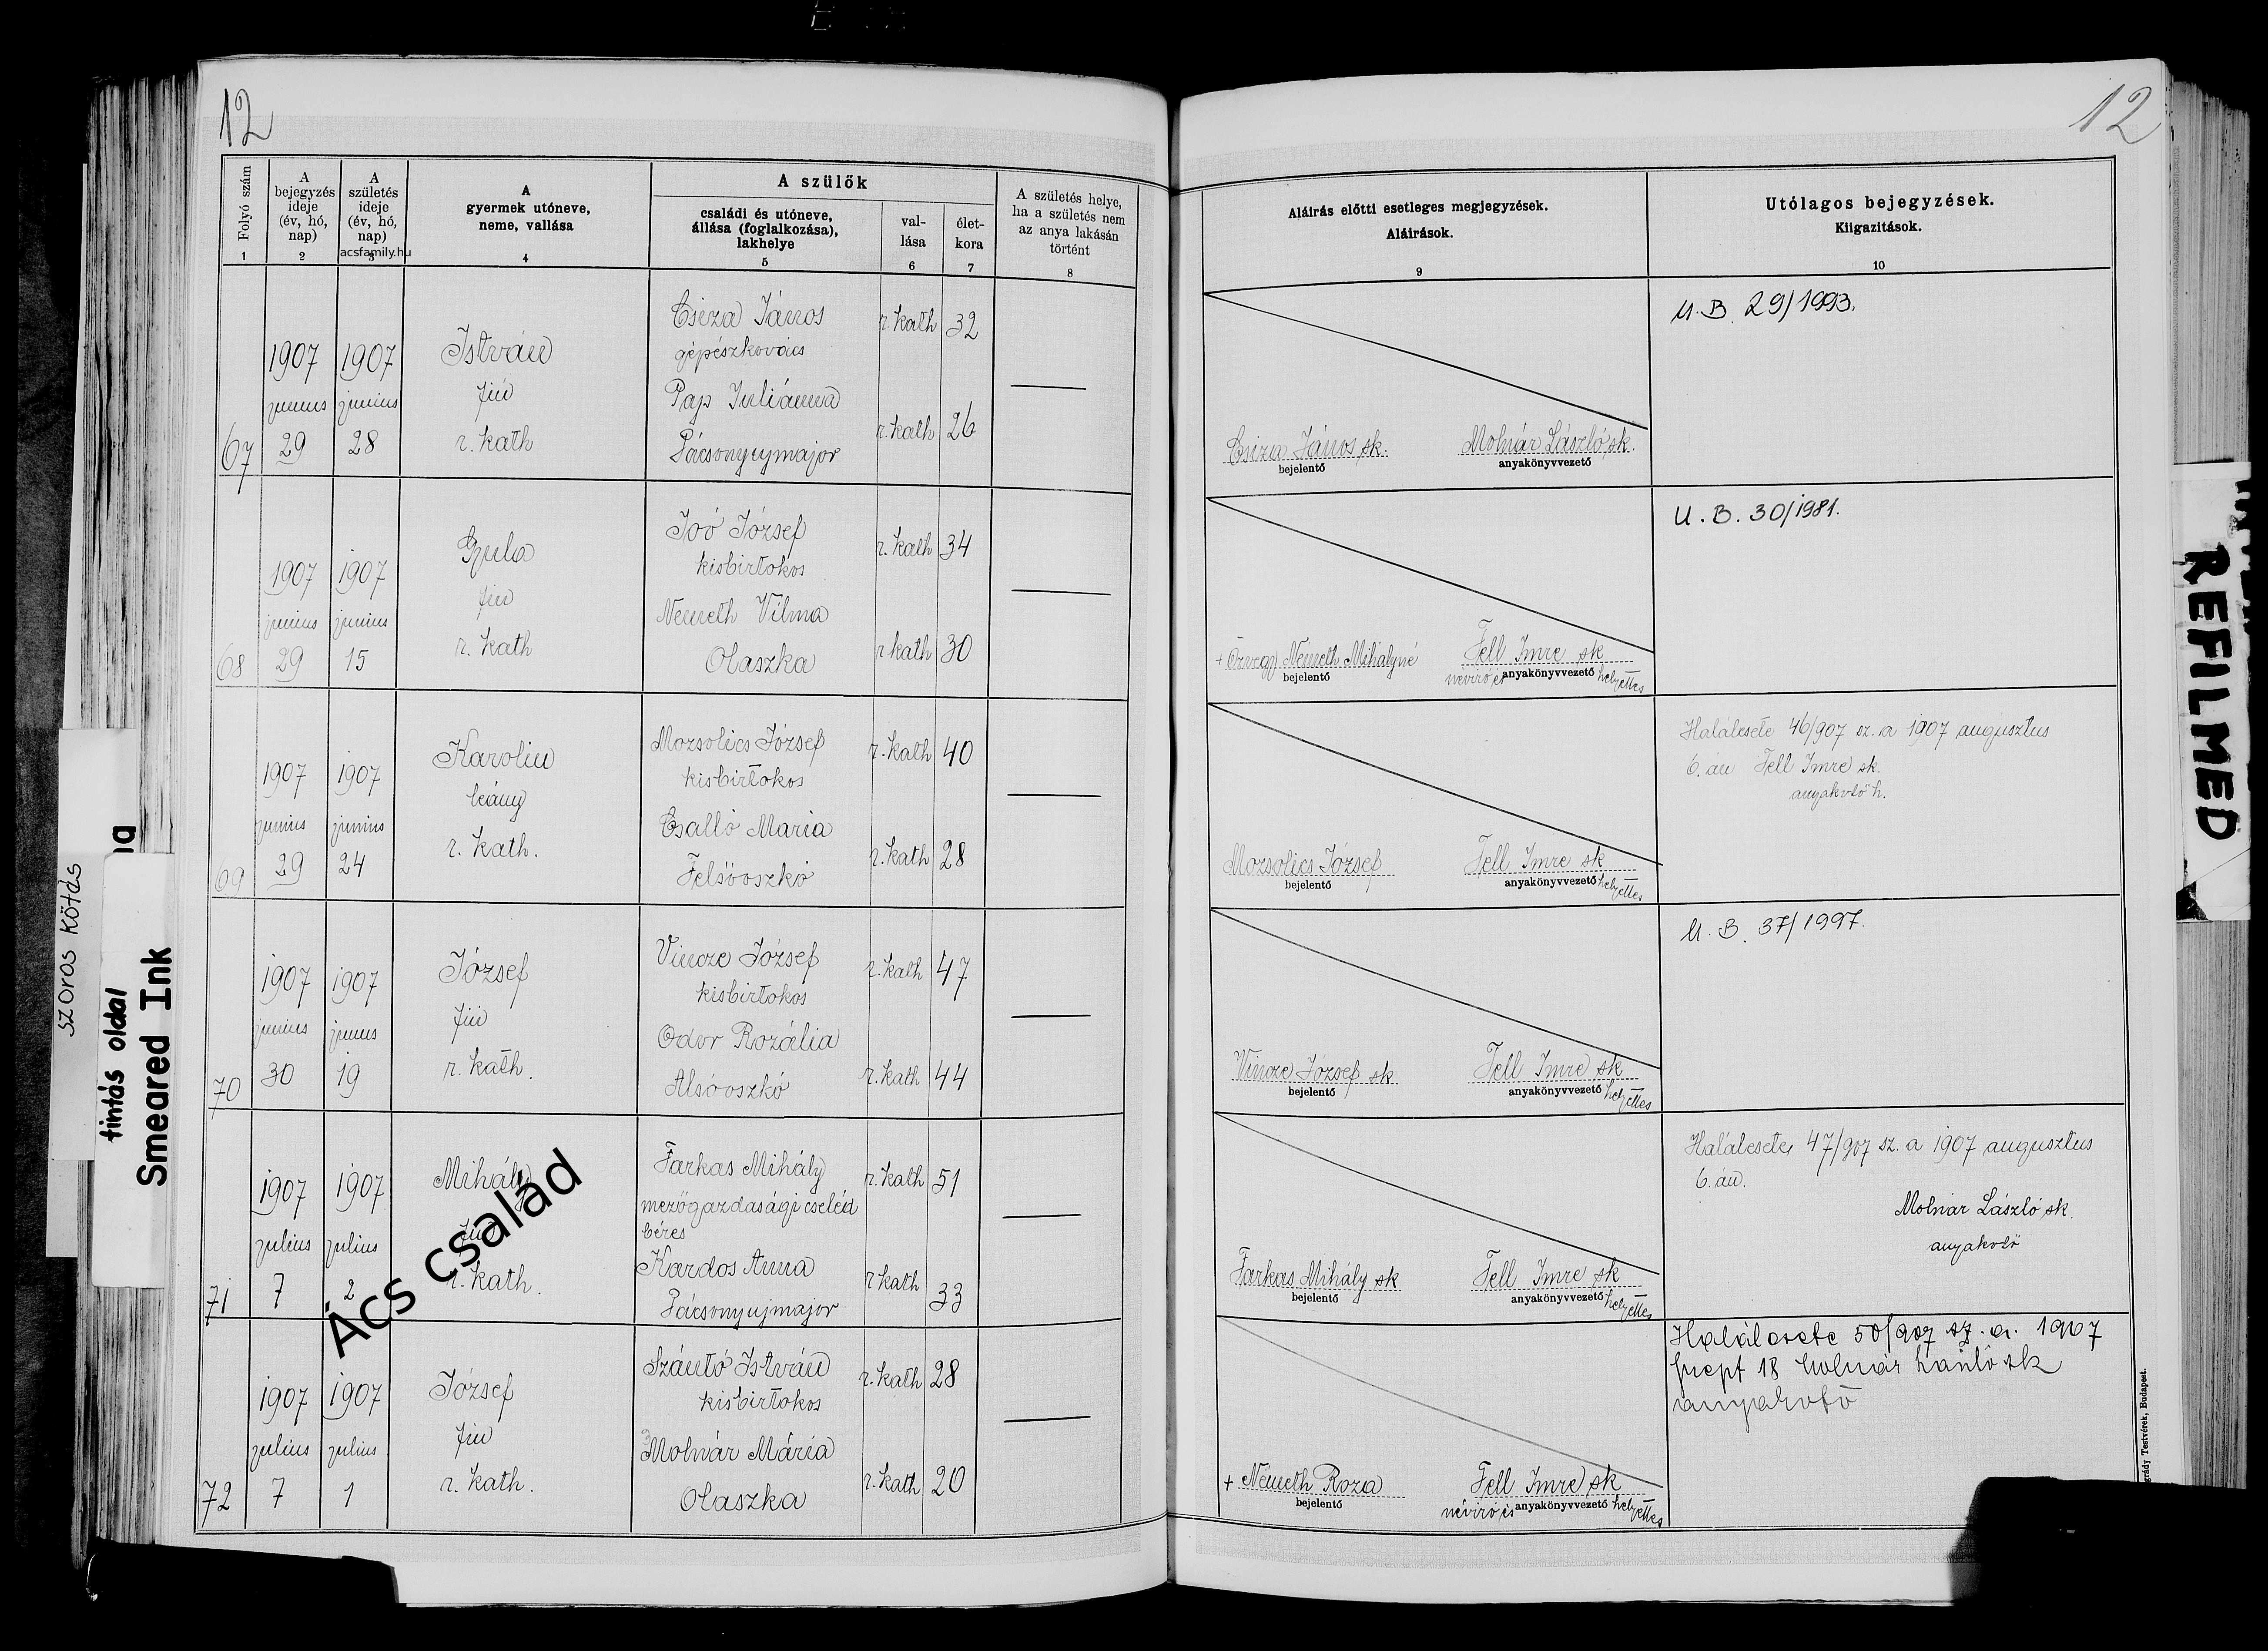 12
Folyó szám
1
A
bejegyzés
ideje
(év, hó,
nap)
2
A
születés
ideje
(év, hó,
nap)
acsfamily.hu
3
A
gyermek utóneve,
neme, vallása
4
A szülők
családi és utóneve,
állása (foglalkozása),
lakhelye
5
val-
lása
6
élet-
kora
7
A születés helye,
ha a születés nem
az anya lakásán
történt
8
67
1907
junius
29
1907
junius
28
István
fiú
r. kath
Csiza János
gépészkovács
Pap Juliánna
Pácsonyujmajor
r. kath
r. kath
32
26
68
1907
junius
29
1907
junius
15
Gyula
fiú
r. kath
Joó József
kisbirtokos
Németh Vilma
Olaszka
r. kath
r kath
34
30
69
1907
junius
29
1907
junius
24
Karolin
leány
r. kath.
Mozsolics József
kisbirtokos
Csalló Maria
Felsőoszkó
r. kath
r. kath
40
28
70
1907
junius
30
1907
junius
19
József
fiú
r. kath.
Vincze József
kisbirtokos
Odor Rozália
Alsóoszkó
r. kath
r. kath
47
44
71
1907
julius
7
1907
julius
2
Mihály
fiú
r. kath.
Farkas Mihály
mezőgazdasági cseléd
béres
Kardos Anna
Pácsonyujmajor
r. kath
r kath
51
33
Ács család
72
1907
julius
7
1907
julius
1
József
fiú
r. kath.
Szántó István
kisbirtokos
Molnár Mária
Olaszka
r. kath
r. kath
28
20
12
Aláirás előtti esetleges megjegyzések.
Aláirások.
9
Utólagos bejegyzések.
Kiigazitások.
10
Csiza János sk.
bejelentő
Molnár László sk.
anyakönyvvezető
U. B. 29/1993.
+ Özvegy Németh Mihályné
bejelentő
Fell Imre sk
néviró és anyakönyvvezető helyettes
U. B. 30/1981.
Mozsolics József
bejelentő
Fell Imre sk
anyakönyvvezető helyettes
Halálesete 46/907 sz. a 1907 augusztus
6. án Fell Imre sk.
anyakvtő h.
Vincze József sk
bejelentő
Fell Imre sk
anyakönyvvezető helyettes
U. B. 37/1997.
Farkas Mihály sk
bejelentő
Fell Imre sk
anyakönyvvezető helyettes
Halálesete 47/907 sz. a 1907 augusztus
6. án.
Molnár László sk.
anyakvtő
+ Németh Roza
bejelentő
Fell Imre sk
néviró és anyakönyvvezető helyettes
Halálesete 50/907 sz. a. 1907
szept 18 Molnár László sk
anyakvtő
Testvérek, Budapest.
SZOROS KÖTÉS
tintás oldal
Smeared Ink
REFILMED